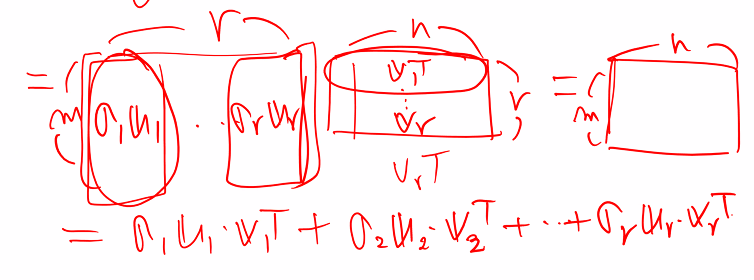 r n n
= m [ σ₁u₁ ... σᵣuᵣ ] v₁ᵀ ⋮ vᵣ r = m
Vᵣᵀ
= σ₁u₁·v₁ᵀ + σ₂u₂·v₂ᵀ + ... + σᵣuᵣ·vᵣᵀ